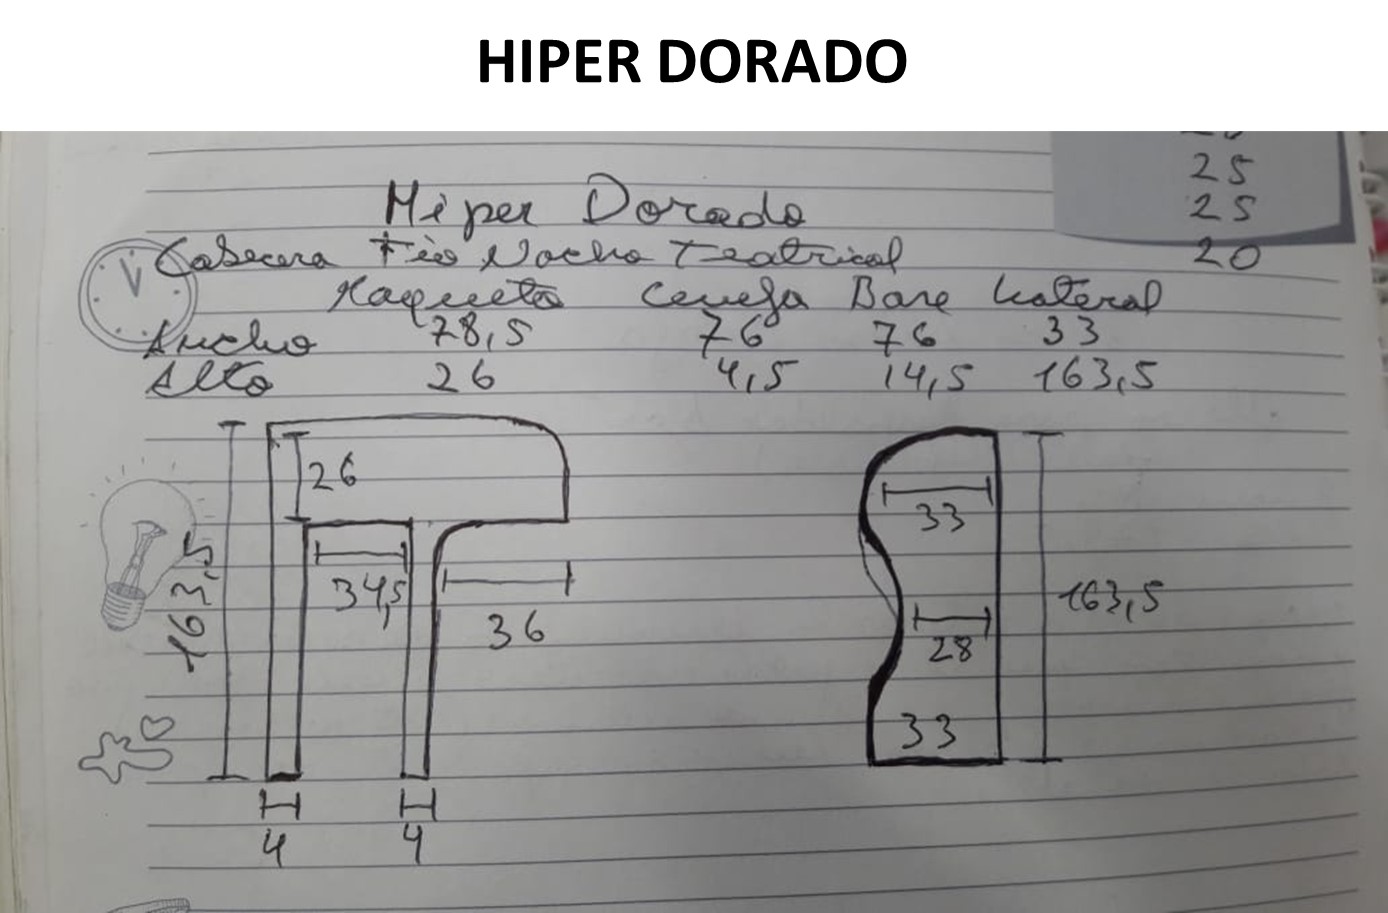 HIPER DORADO
25
25
20
Hiper Dorado
Cabecera Tio Nacho Teatrical
Maqueta Ceneja Base Lateral
Ancho 78,5 76 76 33
Alto 26 4,5 14,5 163,5
26
163,5
34,5
36
4
4
33
28
33
163,5